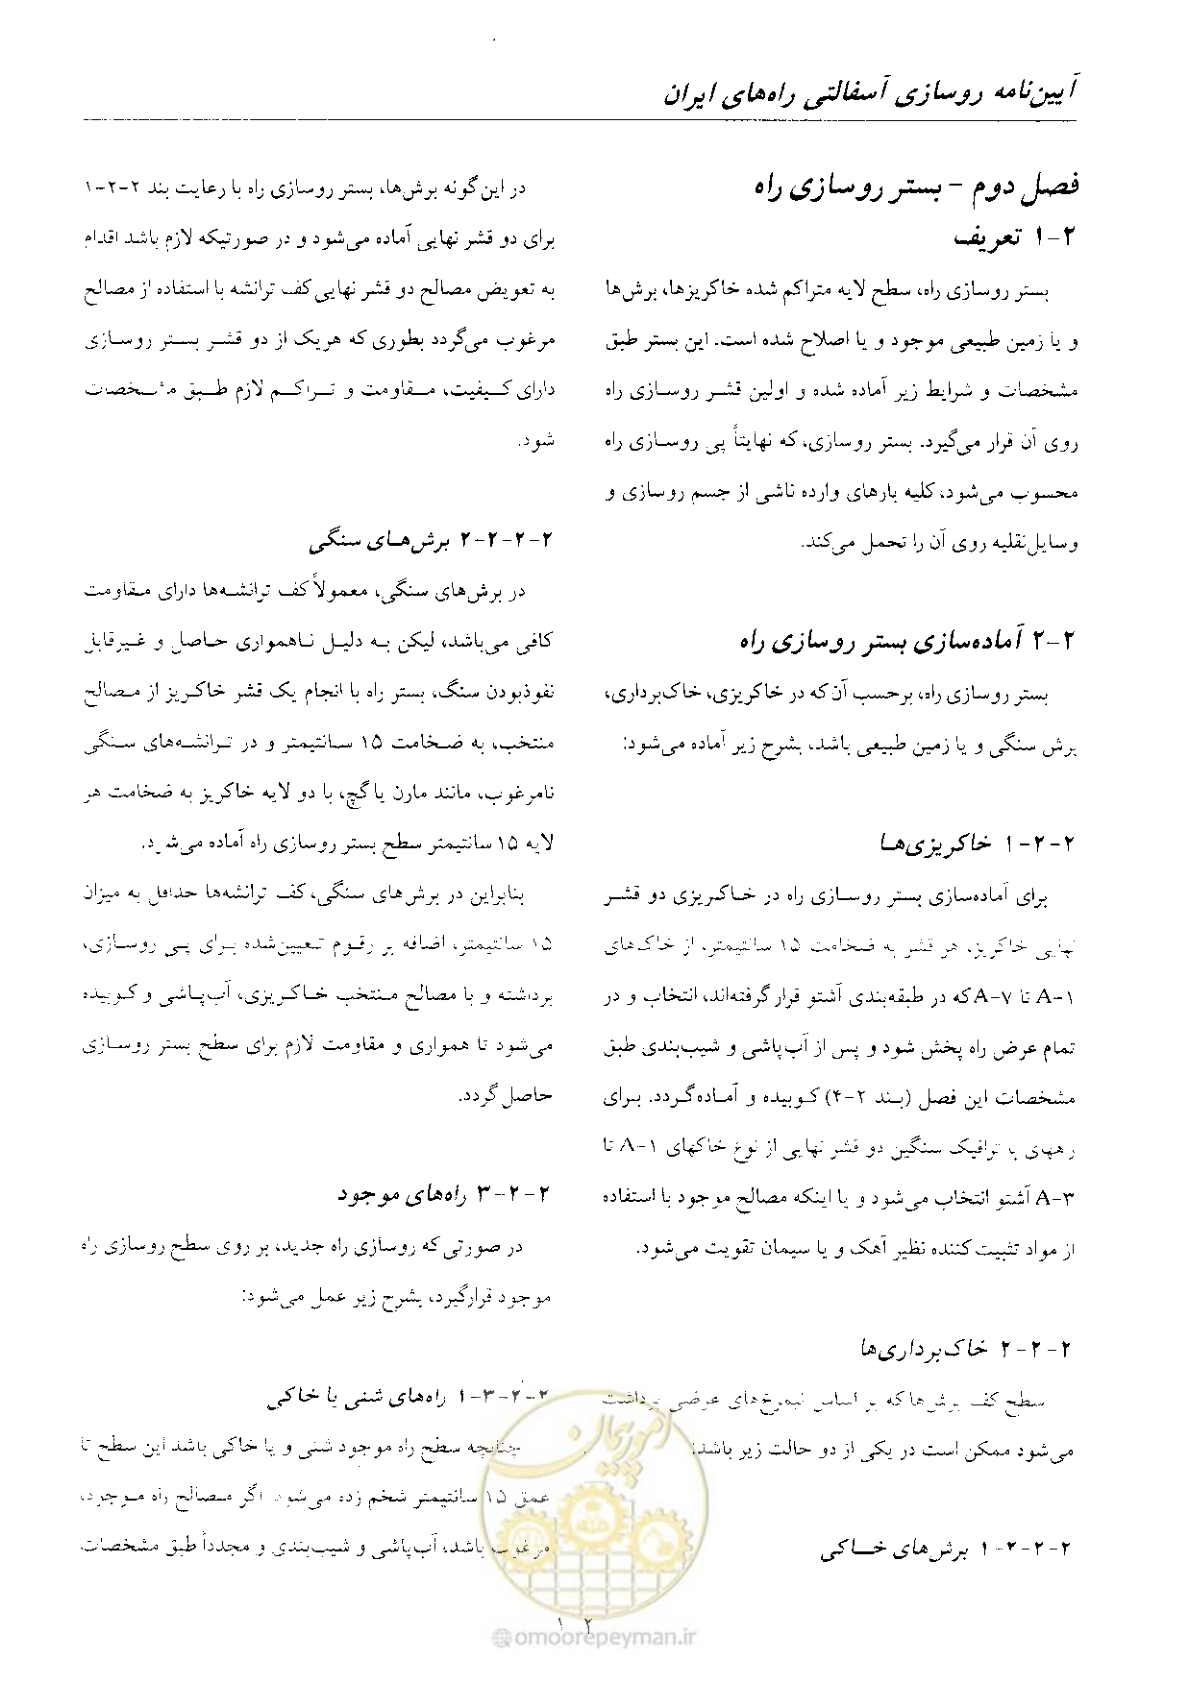 آیین‌نامه روسازی آسفالتی راه‌های ایران
فصل دوم – بستر روسازی راه
۲-۱ تعریف
بستر روسازی راه، سطح لایه متراکم شده خاکریزها، برش‌ها
و یا زمین طبیعی موجود و یا اصلاح شده است. این بستر طبق
مشخصات و شرایط زیر آماده شده و اولین قشر روسازی راه
روی آن قرار می‌گیرد. بستر روسازی، که نهایتاً پی روسازی راه
محسوب می‌شود، کلیه بارهای وارده ناشی از جسم روسازی و
وسایل‌نقلیه روی آن را تحمل می‌کند.
۲-۲ آماده‌سازی بستر روسازی راه
بستر روسازی راه، برحسب آن‌که در خاکریزی، خاک‌برداری،
برش سنگی و یا زمین طبیعی باشد، بشرح زیر آماده می‌شود:
۲-۲-۱ خاکریزی‌ها
برای آماده‌سازی بستر روسازی راه در خاکریزی دو قشر
نهایی خاکریز، هر قشر به ضخامت ۱۵ سانتیمتر، از خاک‌های
A-۱ تا A-۷ که در طبقه‌بندی آشتو قرار گرفته‌اند، انتخاب و در
تمام عرض راه پخش شود و پس از آب‌پاشی و شیب‌بندی طبق
مشخصات این فصل (بند ۲-۴) کوبیده و آماده‌گردد. برای
راههای با ترافیک سنگین دو قشر نهایی از نوع خاکهای A-۱ تا
A-۳ آشتو انتخاب می‌شود و یا اینکه مصالح موجود با استفاده
از مواد تثبیت کننده نظیر آهک و یا سیمان تقویت می‌شود.
۲-۲-۲ خاک‌برداری‌ها
سطح کف برش‌ها که بر اساس نیمرخ‌های عرضی برداشت
می‌شود ممکن است در یکی از دو حالت زیر باشد:
۲-۲-۲-۱ برش‌های خاکی
در این‌گونه برش‌ها، بستر روسازی راه با رعایت بند ۲-۲-۱
برای دو قشر نهایی آماده می‌شود و در صورتیکه لازم باشد اقدام
به تعویض مصالح دو قشر نهایی کف ترانشه با استفاده از مصالح
مرغوب می‌گردد بطوری که هریک از دو قشر بستر روسازی
دارای کیفیت، مقاومت و تراکم لازم طبق مشخصات
شود.
۲-۲-۲-۲ برش‌های سنگی
در برش‌های سنگی، معمولاً کف ترانشه‌ها دارای مقاومت
کافی می‌باشد، لیکن به دلیل ناهمواری حاصل و غیرقابل
نفوذبودن سنگ، بستر راه با انجام یک قشر خاکریز از مصالح
منتخب، به ضخامت ۱۵ سانتیمتر و در ترانشه‌های سنگی
نامرغوب، مانند مارن یا گچ، با دو لایه خاکریز به ضخامت هر
لایه ۱۵ سانتیمتر سطح بستر روسازی راه آماده می‌شود.
بنابراین در برش‌های سنگی، کف ترانشه‌ها حداقل به میزان
۱۵ سانتیمتر، اضافه بر رقوم تعیین‌شده برای پی روسازی،
برداشته و با مصالح منتخب خاکریزی، آب‌پاشی و کوبیده
می‌شود تا همواری و مقاومت لازم برای سطح بستر روسازی
حاصل گردد.
۲-۲-۳ راه‌های موجود
در صورتی که روسازی راه جدید، بر روی سطح روسازی راه
موجود قرارگیرد، بشرح زیر عمل می‌شود:
۲-۲-۳-۱ راه‌های شنی یا خاکی
چنانچه سطح راه موجود شنی و یا خاکی باشد این سطح تا
عمق ۱۵ سانتیمتر شخم زده می‌شود. اگر مصالح راه موجود،
مرغوب باشد، آب‌پاشی و شیب‌بندی و مجدداً طبق مشخصات،
امور پیمان
۱۲
@omoorepeyman.ir